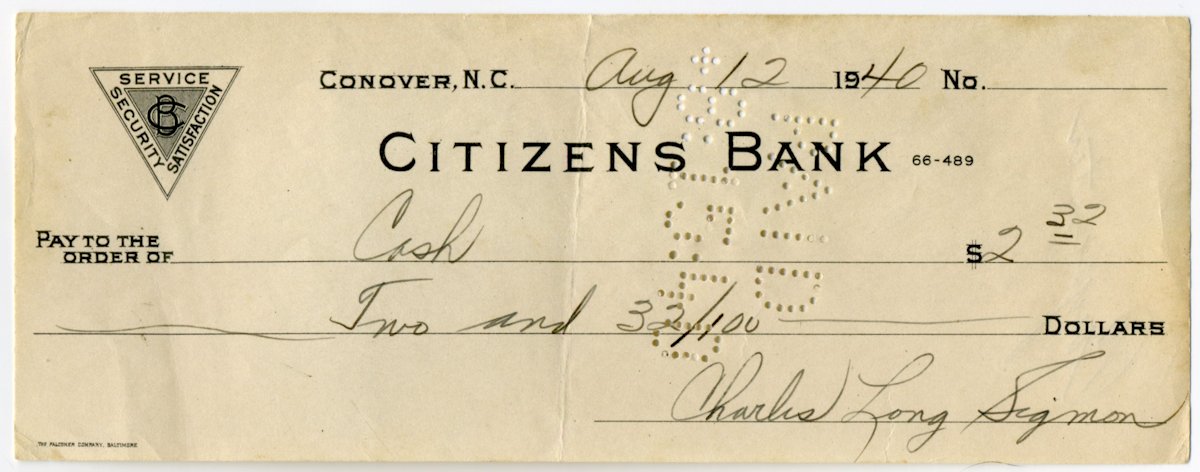 SERVICE
SECURITY
SATISFACTION
CBC
CONOVER, N.C. Aug 12 1940 No.
CITIZENS BANK 66-489
PAY TO THE
ORDER OF Cash $2 32
Two and 32/100 DOLLARS
Charles Long Sigmon
THE FALCONER COMPANY, BALTIMORE
PAID